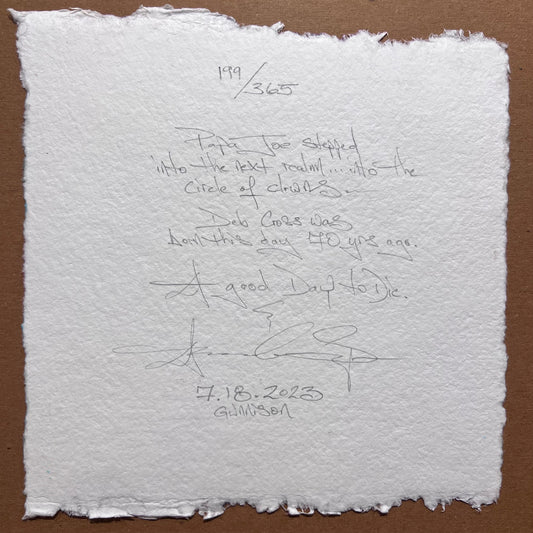 199/365
Papa Joe stepped
into the next realm... into the
circle of clowns.
Deb Cross was
born this day 70 yrs ago.
A good Day to Die.
7.18.2023
Gunnison